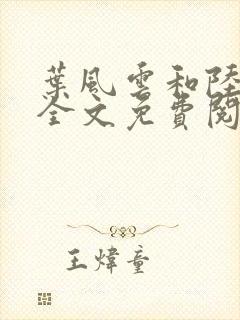 葉風雲和陸
全文免費閱
王煒童